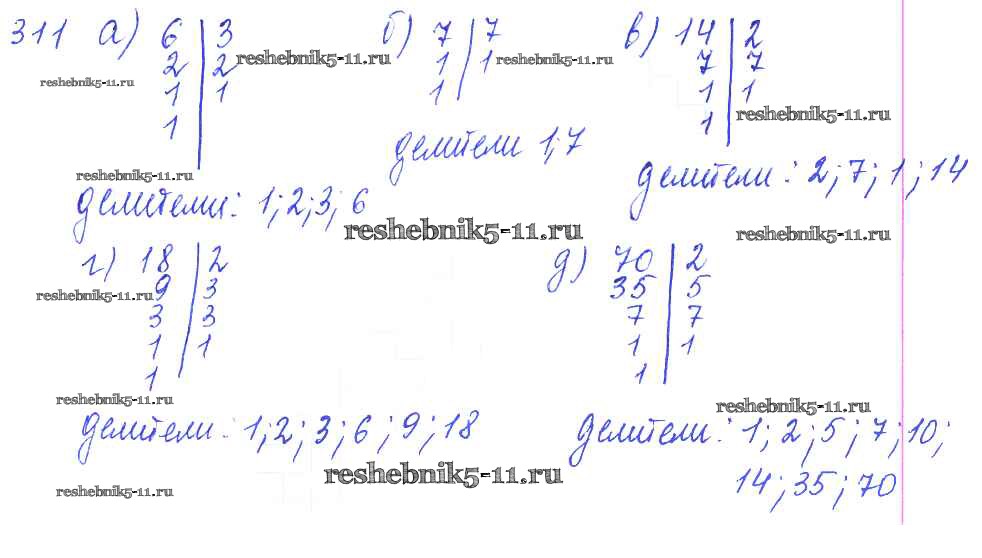 311 а) 6 | 3 б) 7 | 7 в) 14 | 2
2 | 2 reshebnik5-11.ru 1 | 1 reshebnik5-11.ru 7 | 7
reshebnik5-11.ru 1 | 1 1 | 1 | 1
1 | 1 | reshebnik5-11.ru
делители 1; 7
reshebnik5-11.ru делители: 2; 7; 1; 14
делители: 1; 2; 3; 6
reshebnik5-11.ru reshebnik5-11.ru
г) 18 | 2 д) 70 | 2
reshebnik5-11.ru 9 | 3 35 | 5
3 | 3 7 | 7
1 | 1 1 | 1
1 | 1 |
reshebnik5-11.ru reshebnik5-11.ru
делители: 1; 2; 3; 6; 9; 18 делители: 1; 2; 5; 7; 10;
reshebnik5-11.ru 14; 35; 70
reshebnik5-11.ru